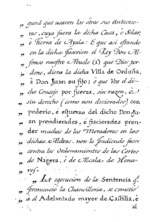 gund que usaron los otros sus anteceso-
res, cuya fuera la dicha Casa, è Solar,
è Tierra de Ayala: E que assi estando
en la dicha possession el Rey Don Al-
fonso nuestro Abuelo (i) que Dios per-
done, diera la dicha Villa de Orduña,
à Don Juan su fijo: è que Vos el di-
cho Concejo por fuerza, sin razon, è
sin derecho (como non devieredes) con
poderio, è esfuerzo del dicho Don Ju-
an prendierades, è fiscierades pren-
der muchos de los Moradores en las
dichas Aldeas, non lo pudiendo facer
contra los Ordenamientos de las Cortes
de Nagera, è de Alcala de Hena-
res.
Las execucion de la Sentencia q.e
pronunciò la Chancilleria, se cometiò
al Adelantado mayor de Castilla, è
al